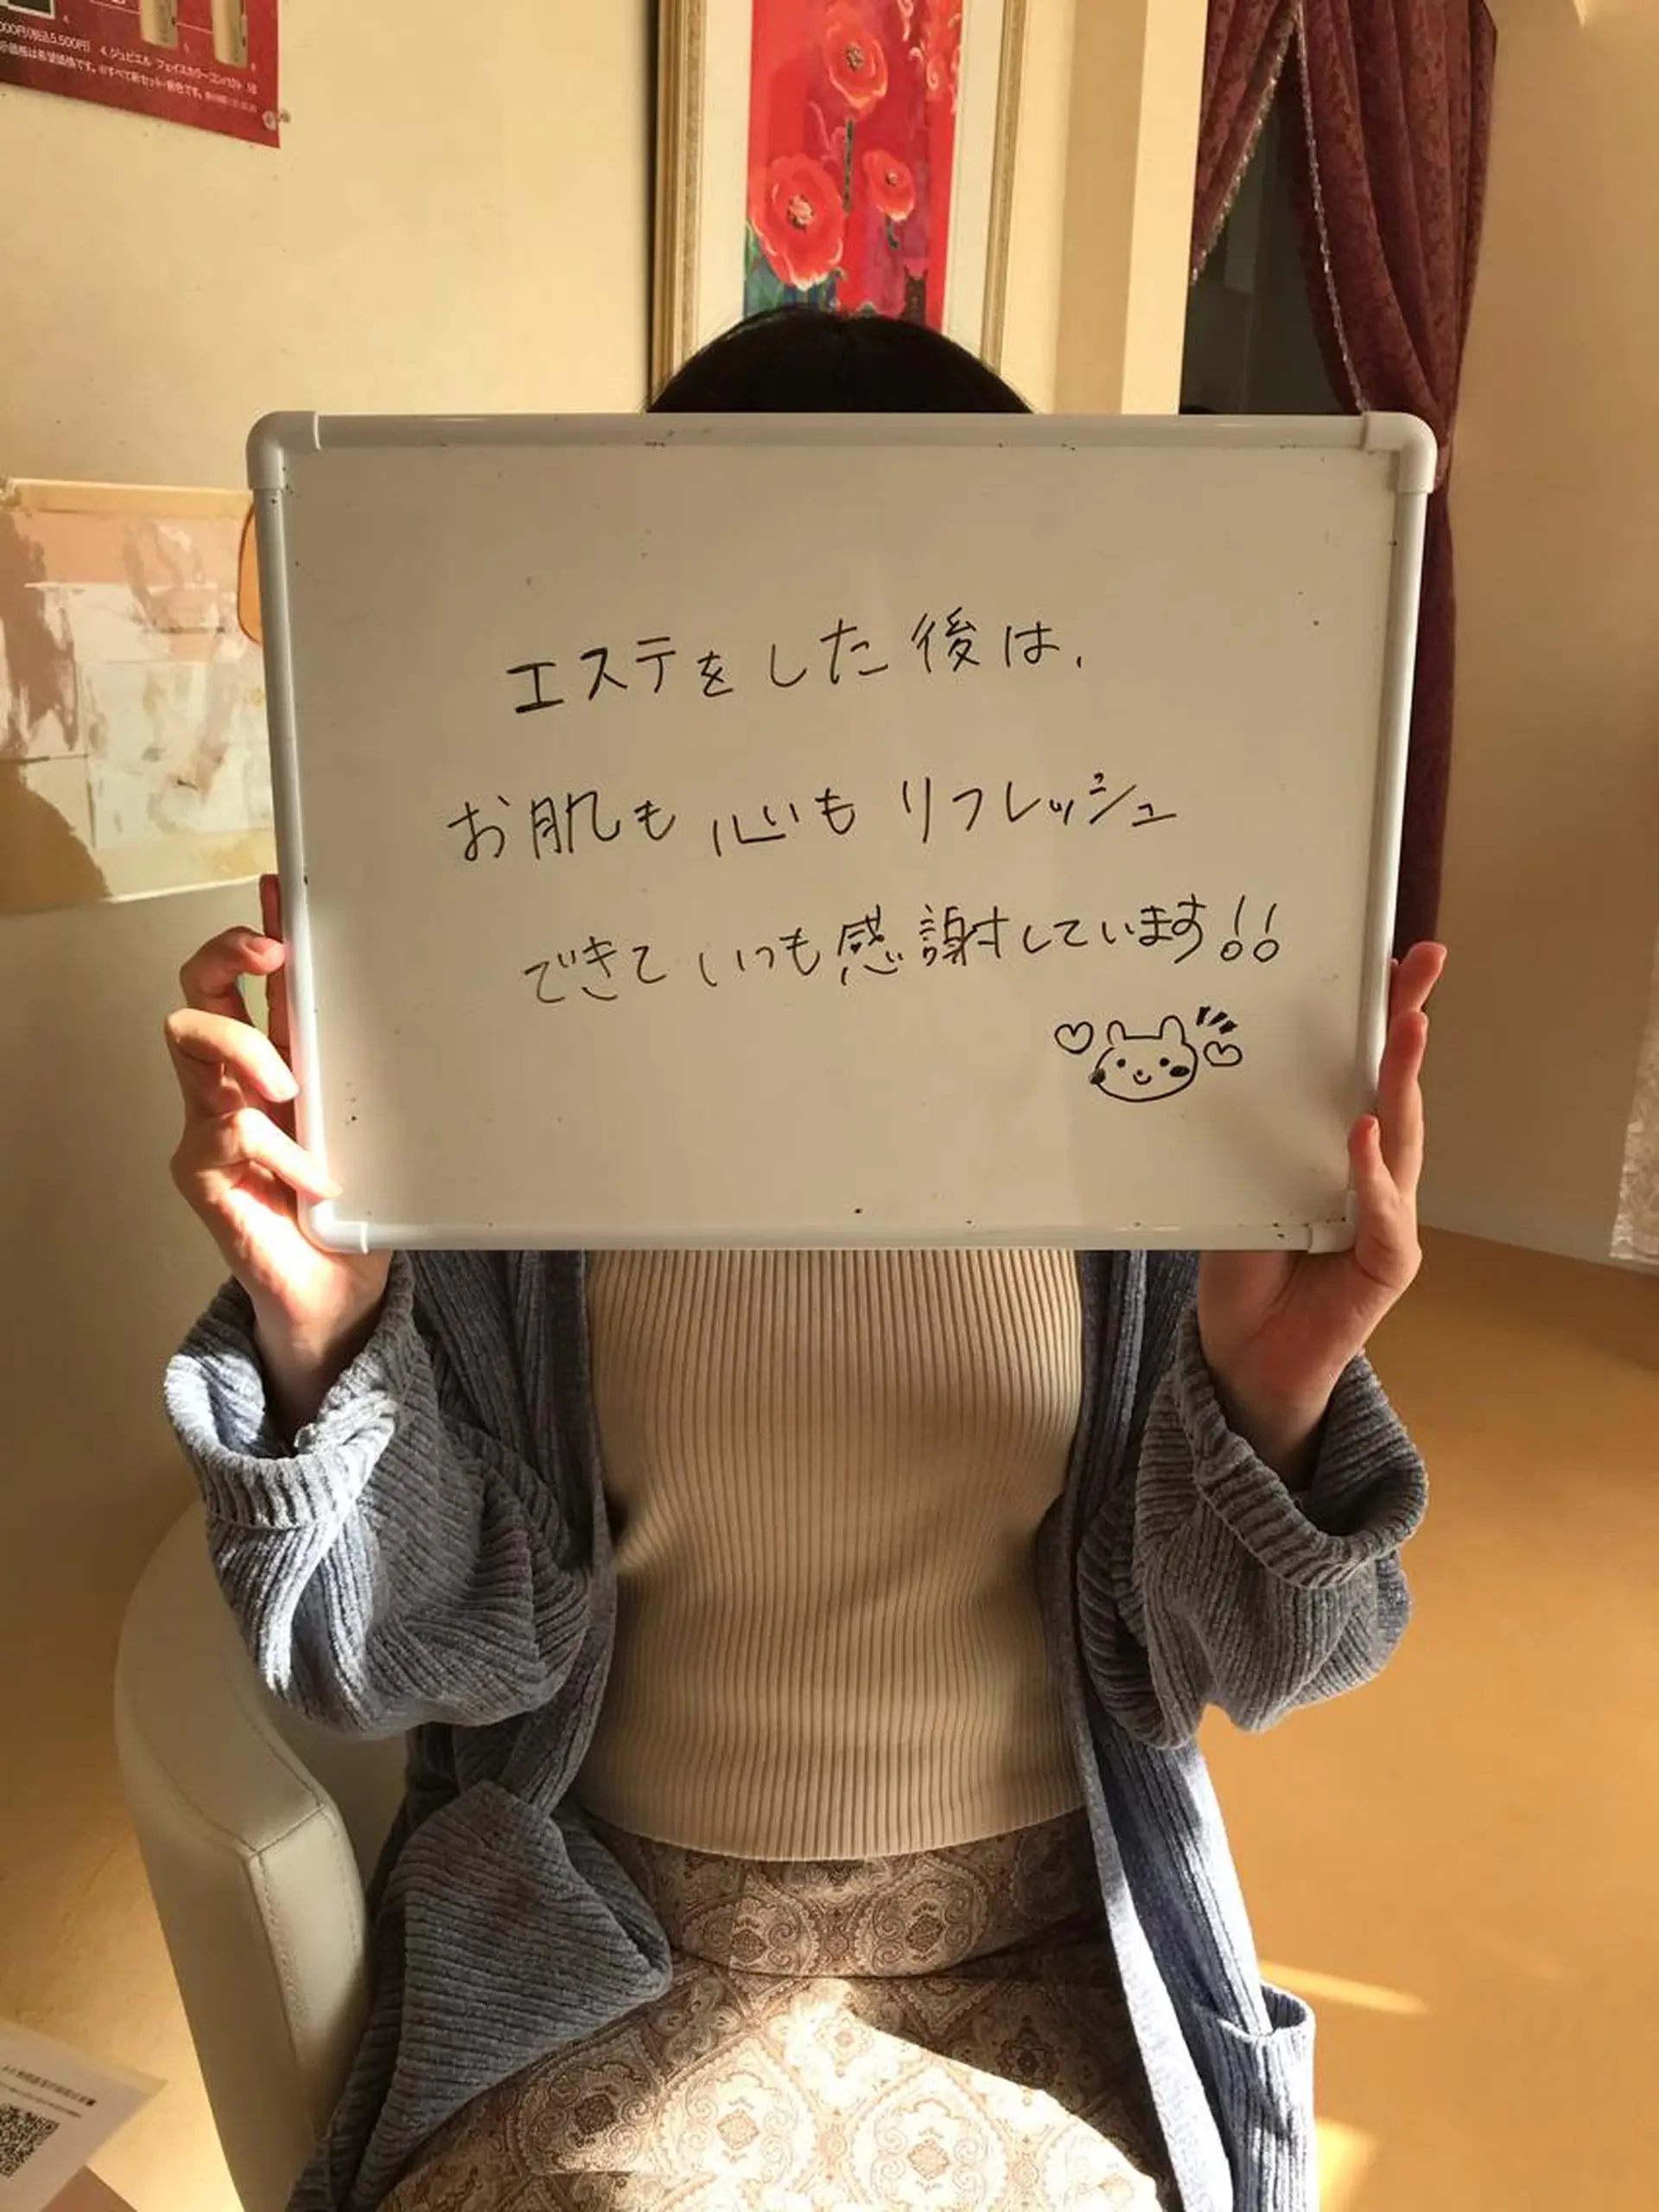 000円(税込5,500円) 4.ジュピエル フェイスカラーコンパクト
エステをした後は、
お肌も心もリフレッシュ
できていつも感謝しています!!